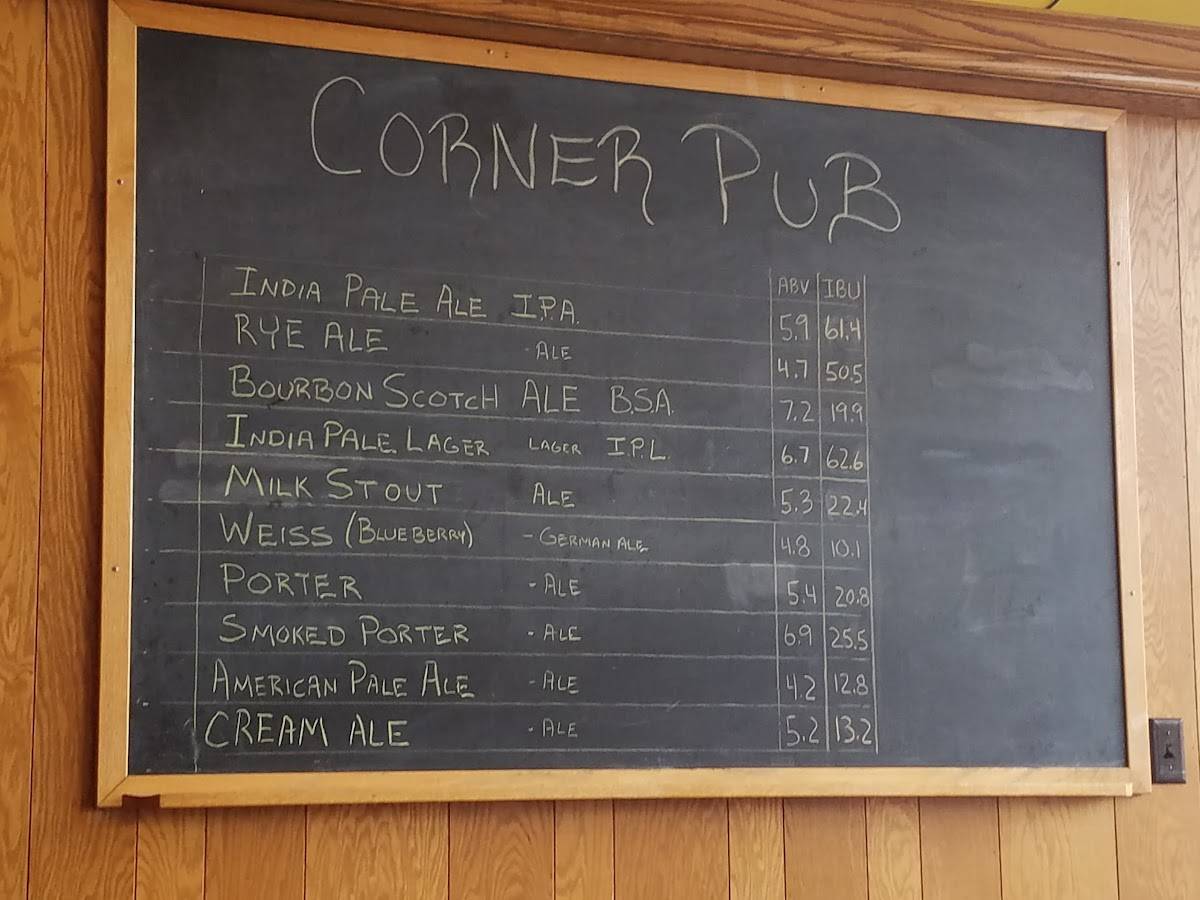 CORNER PUB
ABV IBU
INDIA PALE ALE I.P.A. 5.9 61.4
RYE ALE - ALE 4.7 50.5
BOURBON SCOTCH ALE B.S.A. 7.2 19.9
INDIA PALE LAGER LAGER I.P.L. 6.7 62.6
MILK STOUT ALE 5.3 22.4
WEISS (BLUEBERRY) - GERMAN ALE 4.8 10.1
PORTER - ALE 5.4 20.8
SMOKED PORTER - ALE 6.9 25.5
AMERICAN PALE ALE - ALE 4.2 12.8
CREAM ALE - ALE 5.2 13.2